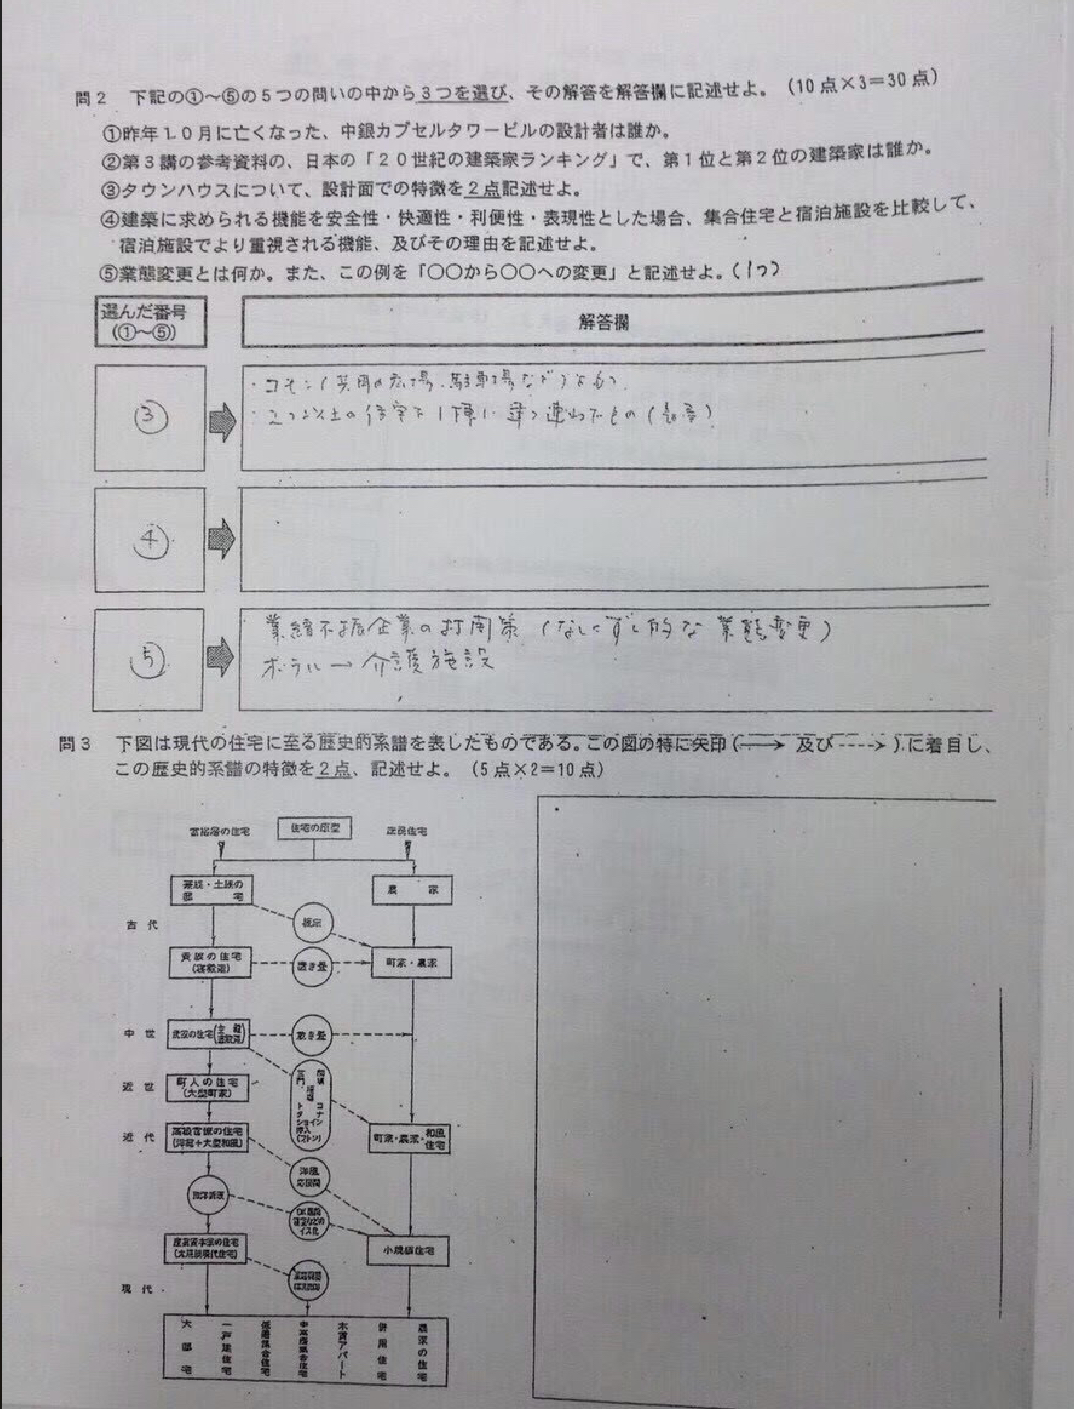 問2 下記の①～⑤の5つの問いの中から3つを選び、その解答を解答欄に記述せよ。(10点×3=30点)
①昨年10月に亡くなった、中銀カプセルタワービルの設計者は誰か。
②第3講の参考資料の、日本の「20世紀の建築家ランキング」で、第1位と第2位の建築家は誰か。
③タウンハウスについて、設計面での特徴を2点記述せよ。
④建築に求められる機能を安全性・快適性・利便性・表現性とした場合、集合住宅と宿泊施設を比較して、
宿泊施設でより重視される機能、及びその理由を記述せよ。
⑤業態変更とは何か。また、この例を「〇〇から〇〇への変更」と記述せよ。(1つ)
選んだ番号
(①～⑤)
解答欄
③
・コモン(共用の広場、駐車場など)
・2つ以上の住宅を1棟に建て連ねたもの
④
⑤
業績不振企業の打開策(なしくずし的な業態変更)
ホテル→介護施設
問3 下図は現代の住宅に至る歴史的系譜を表したものである。この図の特に矢印(→及び---->)に着目し、
この歴史的系譜の特徴を2点、記述せよ。(5点×2=10点)
住宅の原型
支配層の住宅
庶民住宅
豪族・土族の
邸宅
農家
古代
貴族の住宅
(寝殿造)
置き畳
町家・農家
中世
武家の住宅
敷き畳
近世
町人の住宅
(大型町家)
近代
高級官僚の住宅
(洋館+大型和風)
町家・農家・和風
住宅
洋風
応接間
小規模住宅
現代
大邸宅
一戸建住宅
低層集合住宅
中高層集合住宅
木賃アパート
併用住宅
農家の住宅